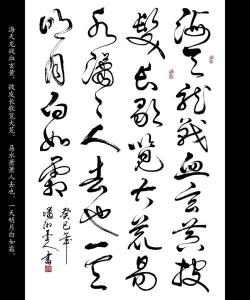 海天龍戰血玄黄披
髮長歌覽大荒易
水瀟瀟人去也一天
明月白如霜
癸巳年
人書
海天龙战血玄黄，披发长歌览大荒。易水萧萧人去也，一天明月白如霜。